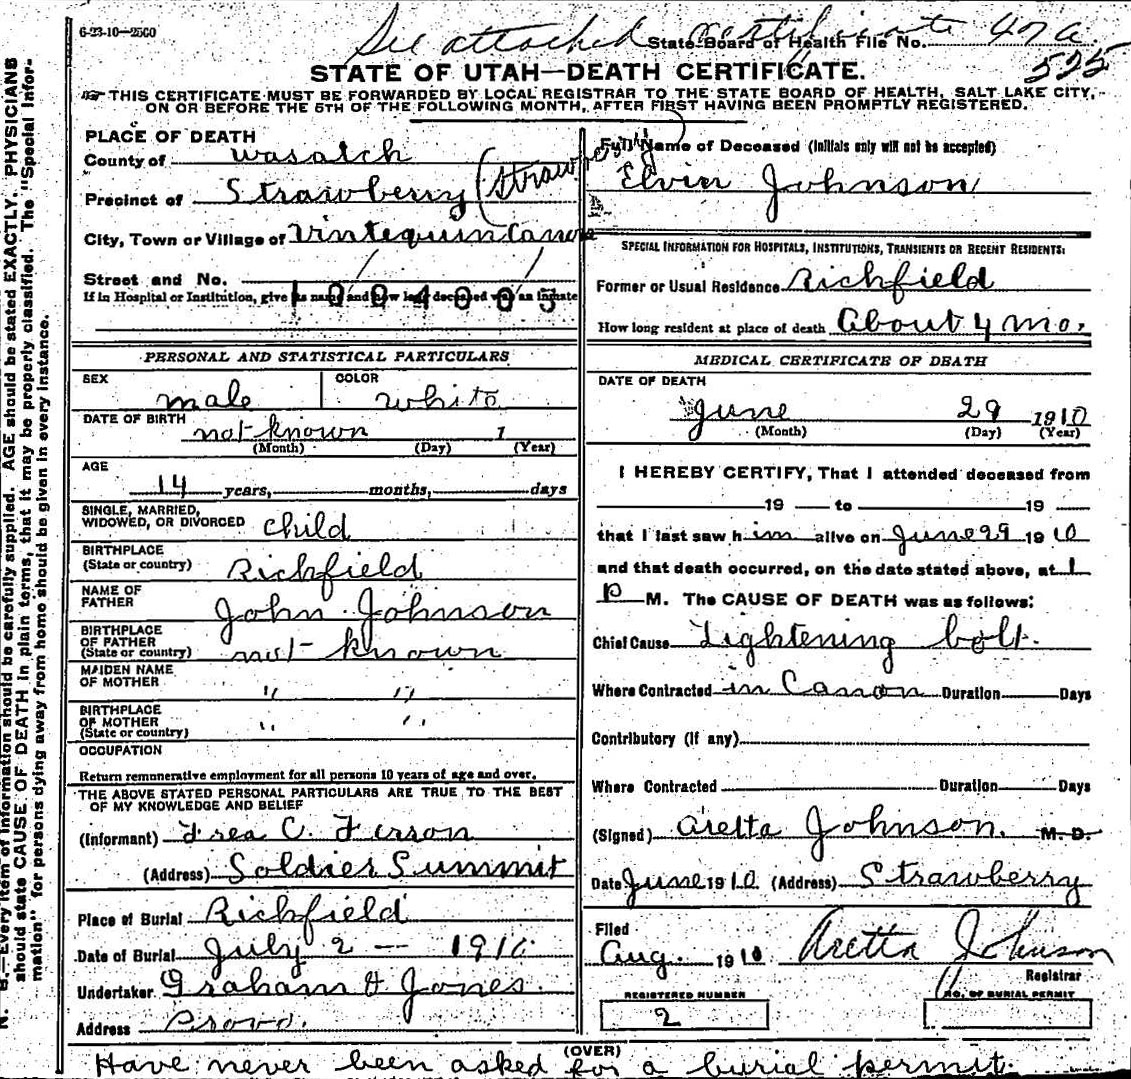 6-23-10—2500
See attached certificate 47a.
State Board of Health File No. 525
STATE OF UTAH—DEATH CERTIFICATE.
THIS CERTIFICATE MUST BE FORWARDED BY LOCAL REGISTRAR TO THE STATE BOARD OF HEALTH, SALT LAKE CITY,
ON OR BEFORE THE 5TH OF THE FOLLOWING MONTH, AFTER FIRST HAVING BEEN PROMPTLY REGISTERED.
PLACE OF DEATH
County of Wasatch
Precinct of Strawberry (Strawberry)
City, Town or Village of Vintequin Canon
Street and No.
If in Hospital or Institution, give its name and how long deceased was an inmate
Full Name of Deceased (Initials only will not be accepted)
Elvin Johnson
SPECIAL INFORMATION FOR HOSPITALS, INSTITUTIONS, TRANSIENTS OR RECENT RESIDENTS:
Former or Usual Residence Richfield
How long resident at place of death About 4 mo.
PERSONAL AND STATISTICAL PARTICULARS
SEX male
COLOR white
DATE OF BIRTH not known 1
(Month) (Day) (Year)
AGE
14 years, months, days
SINGLE, MARRIED,
WIDOWED, OR DIVORCED child
BIRTHPLACE
(State or country) Richfield
NAME OF
FATHER John Johnson
BIRTHPLACE
OF FATHER
(State or country) not known
MAIDEN NAME
OF MOTHER " "
BIRTHPLACE
OF MOTHER
(State or country) " "
OCCUPATION
Return remonerative employment for all persons 10 years of age and over.
THE ABOVE STATED PERSONAL PARTICULARS ARE TRUE TO THE BEST
OF MY KNOWLEDGE AND BELIEF
(Informant) C.
(Address) Soldier Summit
Place of Burial Richfield
Date of Burial July 2 — 1910
Undertaker Graham & Jones.
Address Provo.
MEDICAL CERTIFICATE OF DEATH
DATE OF DEATH
June 29 1910
(Month) (Day) (Year)
I HEREBY CERTIFY, That I attended deceased from
19 to 19
that I last saw him alive on June 29 1910
and that death occurred, on the date stated above, at 1
P M. The CAUSE OF DEATH was as follows:
Chief Cause Lightening bolt.
Where Contracted in Canon Duration Days
Contributory (if any)
Where Contracted Duration Days
(Signed) Aretta Johnson. M. D.
Date June 1910 (Address) Strawberry
Filed
Aug. 1910 Aretta Johnson
Registrar
REGISTERED NUMBER
2
NO. OF BURIAL PERMIT
(OVER)
Have never been asked for a burial permit.
N. B.—Every item of information should be carefully supplied. AGE should be stated EXACTLY. PHYSICIANS
should state CAUSE OF DEATH in plain terms, that it may be properly classified. The "Special Infor-
mation" for persons dying away from home should be given in every instance.